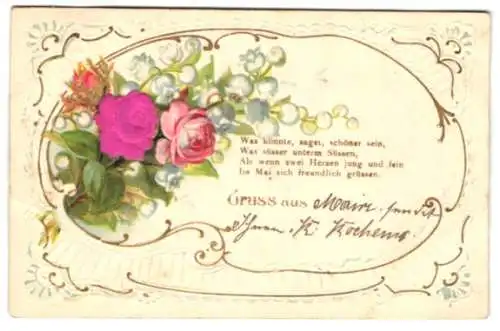 Was könnte, saget, schöner sein,
Was süsser unterm Süssen,
Als wenn zwei Herzen jung und fein
Im Mai sich freundlich grüssen.
Gruss aus Mainz sendet
Ihnen K. Kochems